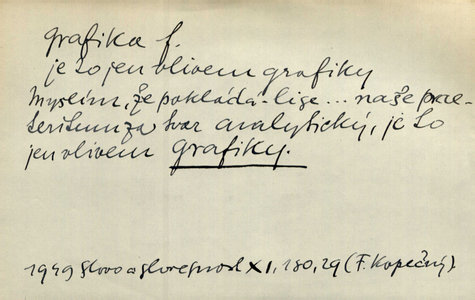 grafika f.
je to jen vlivem grafiky
Myslím, že pokládá-li se ... naše pre-
teritum za tvar analytický, je to
jen vlivem grafiky.
1949 Slovo a slovesnost XI, 180, 29 (F. Kopečný)